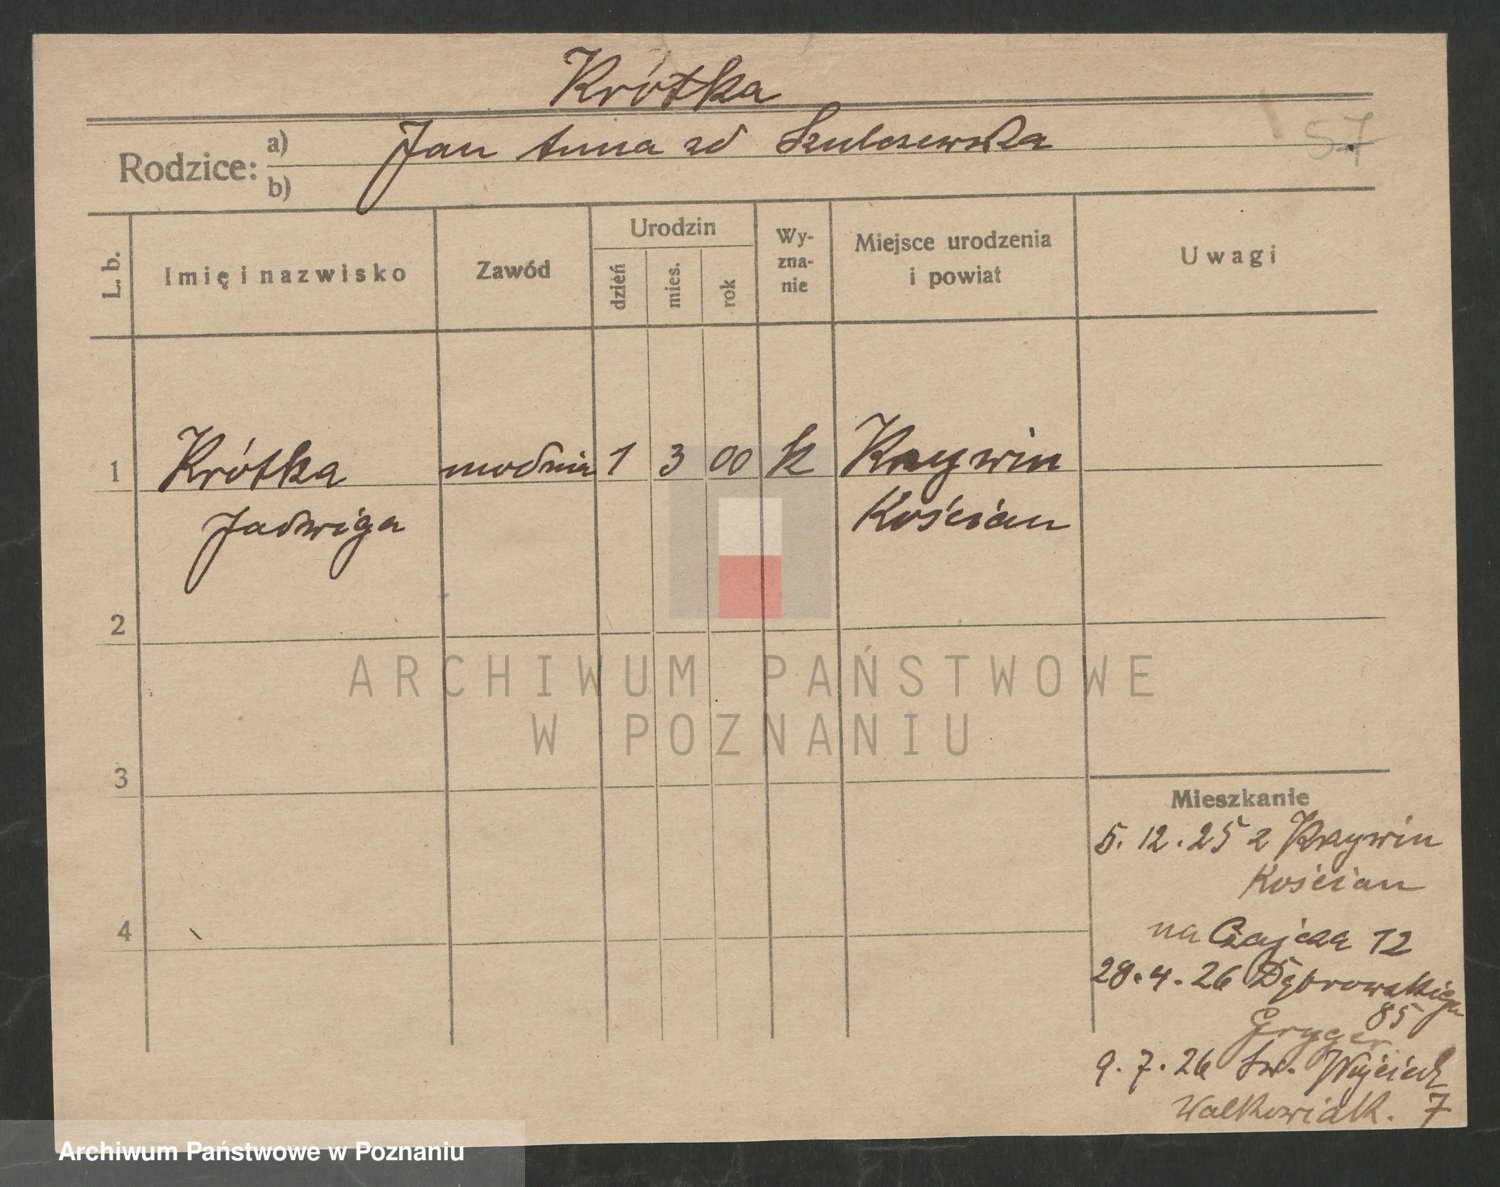 Krótka
57
Rodzice: a) Jan Anna zd Szulczewska
b)
L. b. Imię i nazwisko Zawód Urodzin dzień mies. rok Wy-zna-nie Miejsce urodzenia i powiat Uwagi
1 Krótka modnia 1 3 00 k Krzywin
Jadwiga Kościan
2
ARCHIWUM PAŃSTWOWE
W POZNANIU
3
Mieszkanie
5. 12. 25 z Krzywin
Kościan
na Czajcza 12
4
28. 4. 26 Dąbrowskiego
85
Gryger
9. 7. 26 Św. Wojciech
Walkowiak. 7
Archiwum Państwowe w Poznaniu